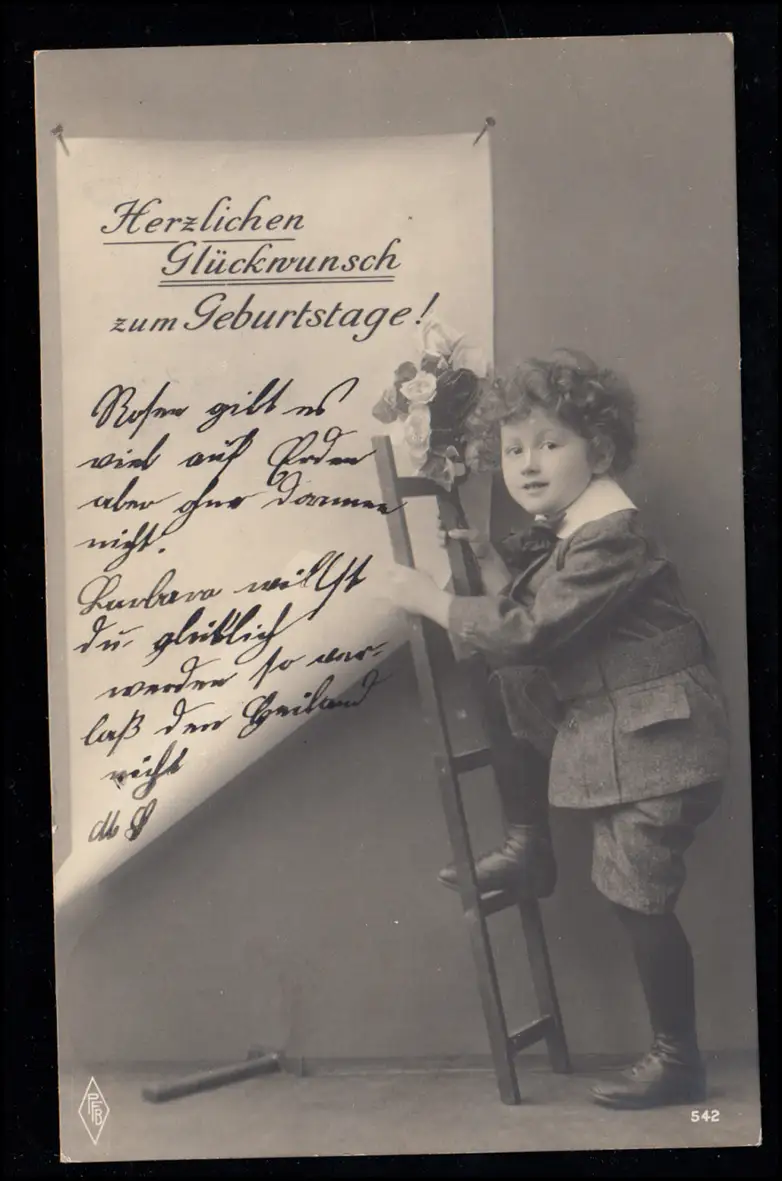 Herzlichen
Glückwunsch
zum Geburtstage!
Rosen gibt es
viel auf Erden
aber ohne Dornen
nicht.
Barbara willst
du glücklich
werden so ver-
laß den Heiland
nicht
PFB
542